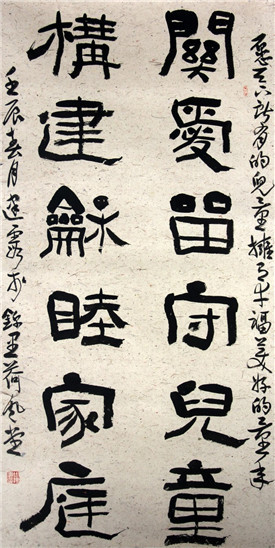 愿天下所有的兒童擁有幸福美好的童年
關愛留守兒童
構建龢睦家庭
壬辰春月建於錦里荷風堂